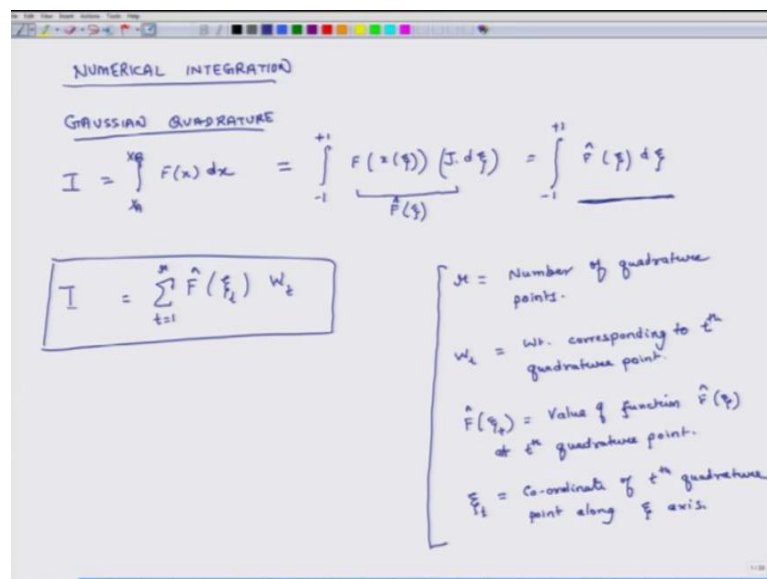 Edit View Insert Actions Tools Help
NUMERICAL INTEGRATION
GAUSSIAN QUADRATURE
I = ∫_{x_A}^{x_B} F(x) dx = ∫_{-1}^{+1} F(x(ξ)) (J. dξ) = ∫_{-1}^{+1} F̂(ξ) dξ
F̂(ξ)
I = Σ_{t=1}^{r} F̂(ξ_t) W_t
r = Number of quadrature
points.
W_t = Wt. corresponding to t^th
quadrature point.
F̂(ξ_t) = Value of function F̂(ξ)
at t^th quadrature point.
ξ_t = Co-ordinate of t^th quadrature
point along ξ axis.